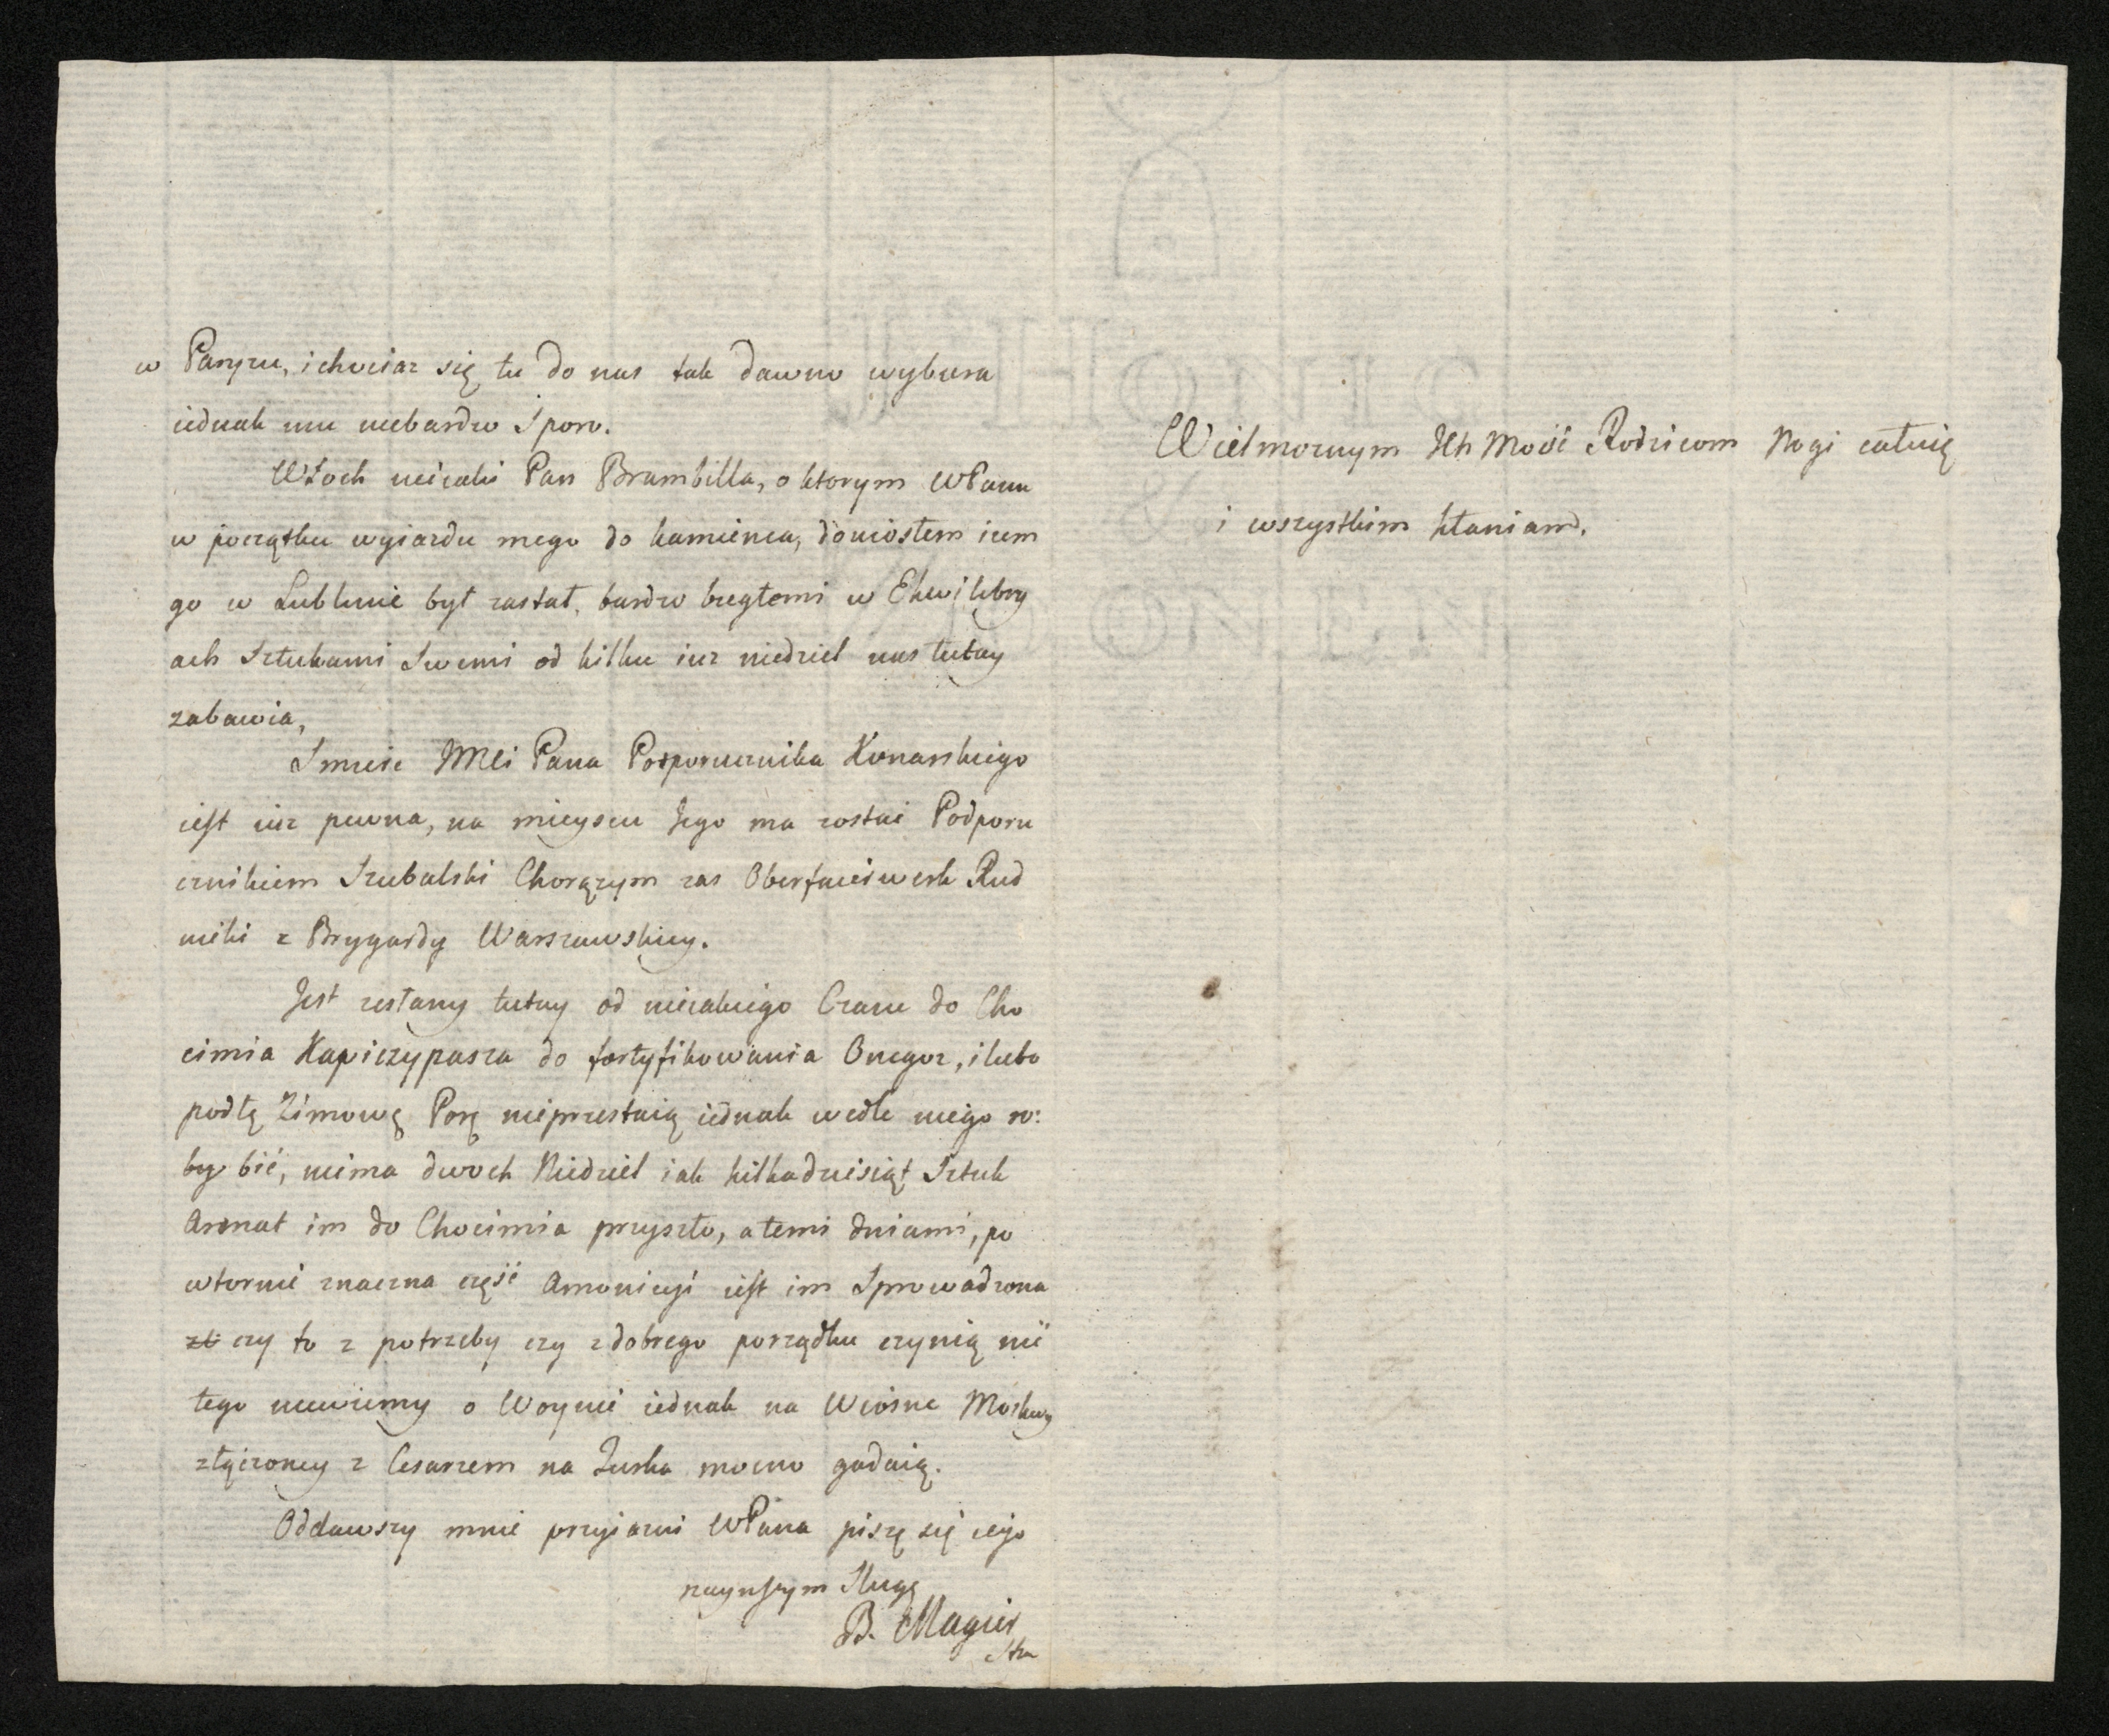 w Paryzu, i chociaz się tu do nas tak dawno wybiera
iednak mu niebardzo Sporo.
Włoch nieiaki Pan Brambilla, o ktorym WPanu
w początku wyiazdu mego do kamienca, doniosłem izem
go w Lublinie był zastał, bardzo biegłemi w Ekwilibry
ach Sztukami Swemi od kilku iuz niedziel nas tutay
zabawia,
Smierc JMCi Pana Podporucznika Konarskiego
iest iuz pewna, na mieyscu Jego ma zostać Podporu
cznikiem Szubalski Chorązym zas Oberfaierwerk Rud
nicki z Brygardy Warszawskiey.
Jest zesłany tutay od nieiakiego Czasu do Cho
cimia Kapiczypasza do fortyfikowania Onegoz, i lubo
podłą Zimową Porą nieprzestaią iednak wedle niego ro:
by bić, niema dwoch Niedziel iak kilkadziesiąt Sztuk
Armat im do Chocimia przyszło, a temi dniami, po
wtornie znaczna część Amonicyi iest im Sprowadzona
czy to z potrzeby czy z dobrego porządku czynią nie
tego niewiemy o Woynie iednak na Wiosne Moskwy
złączoney z Cesarzem na Turka mocno gadaią.
Oddawszy mnie przyiazni WPana piszę się iego
nayniszym Sługą
B. Magier
Wielmoznym Ich Mość Rodzicom Nogi całuię
i wszystkim kłaniam.